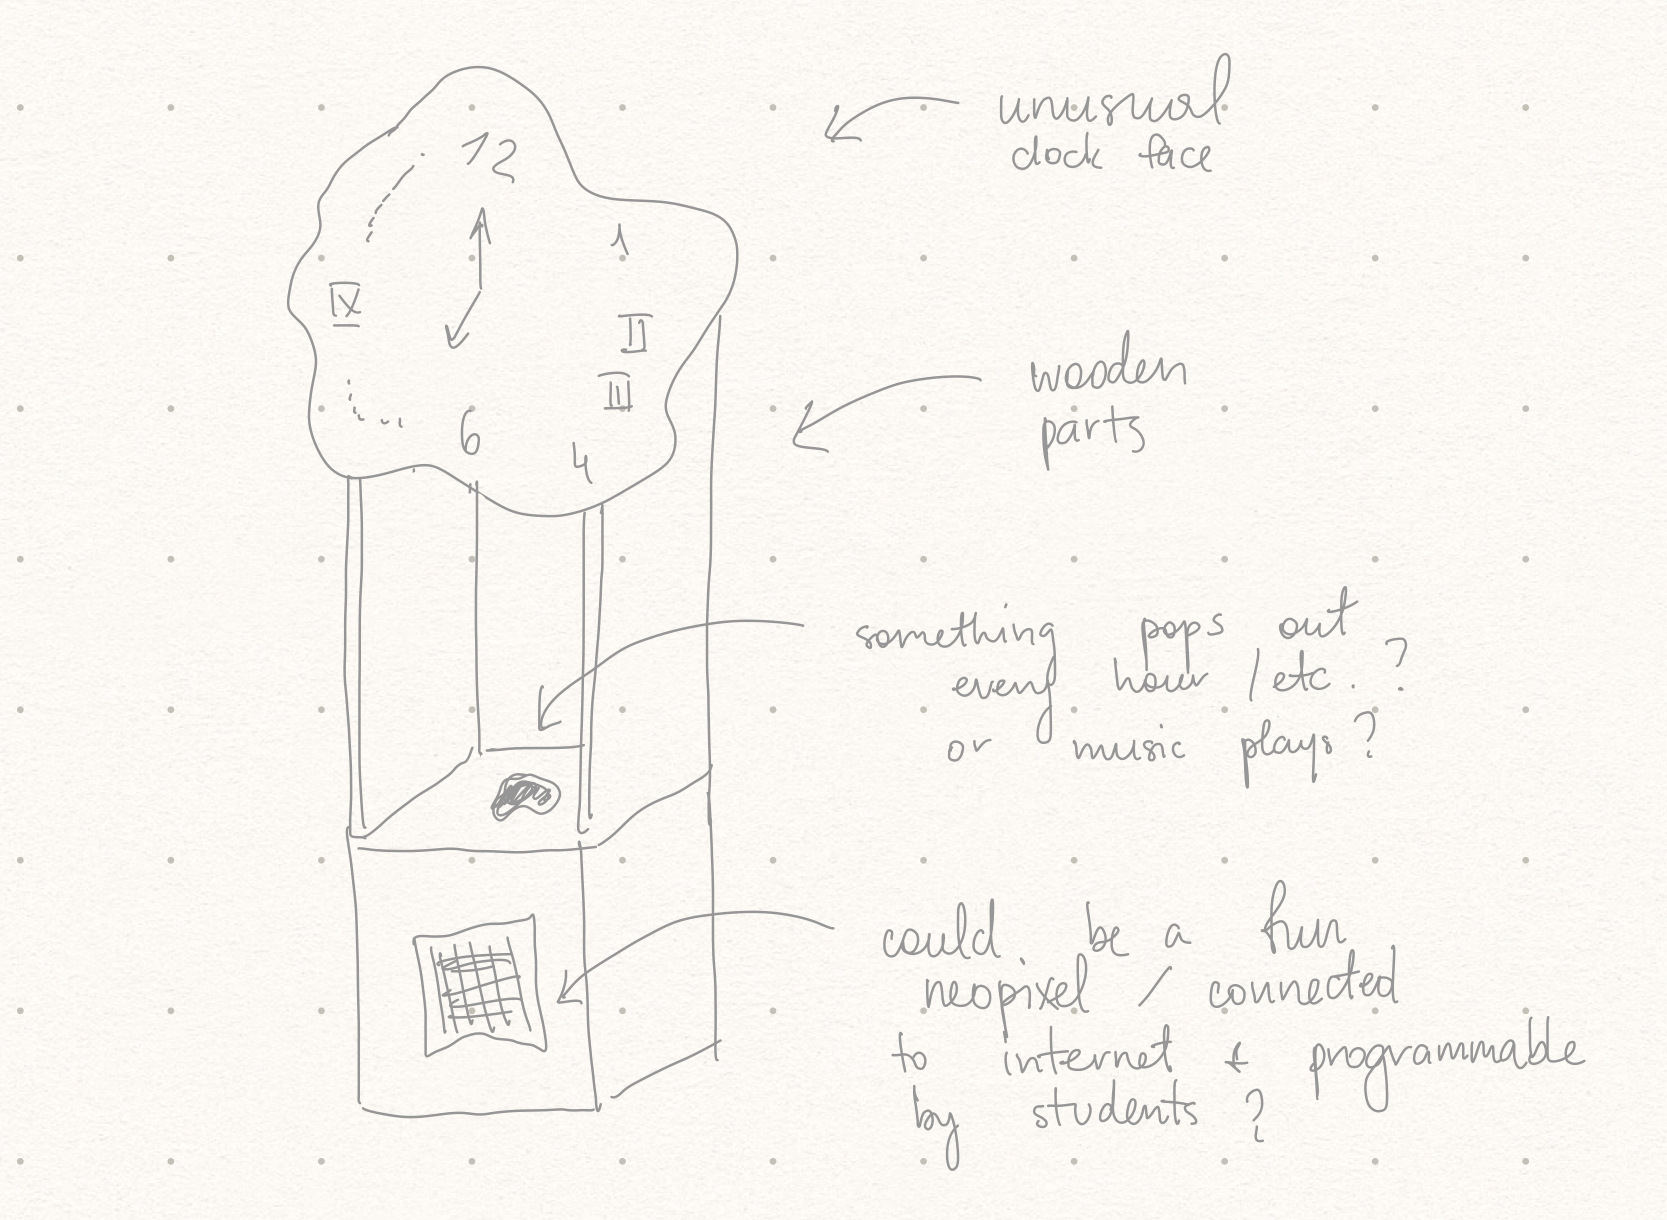 12
1
IX
II
III
6
4
unusual
clock face
wooden
parts
something pops out
every hour / etc. ?
or music plays?
could be a fun
neopixel / connected
to internet & programmable
by students ?